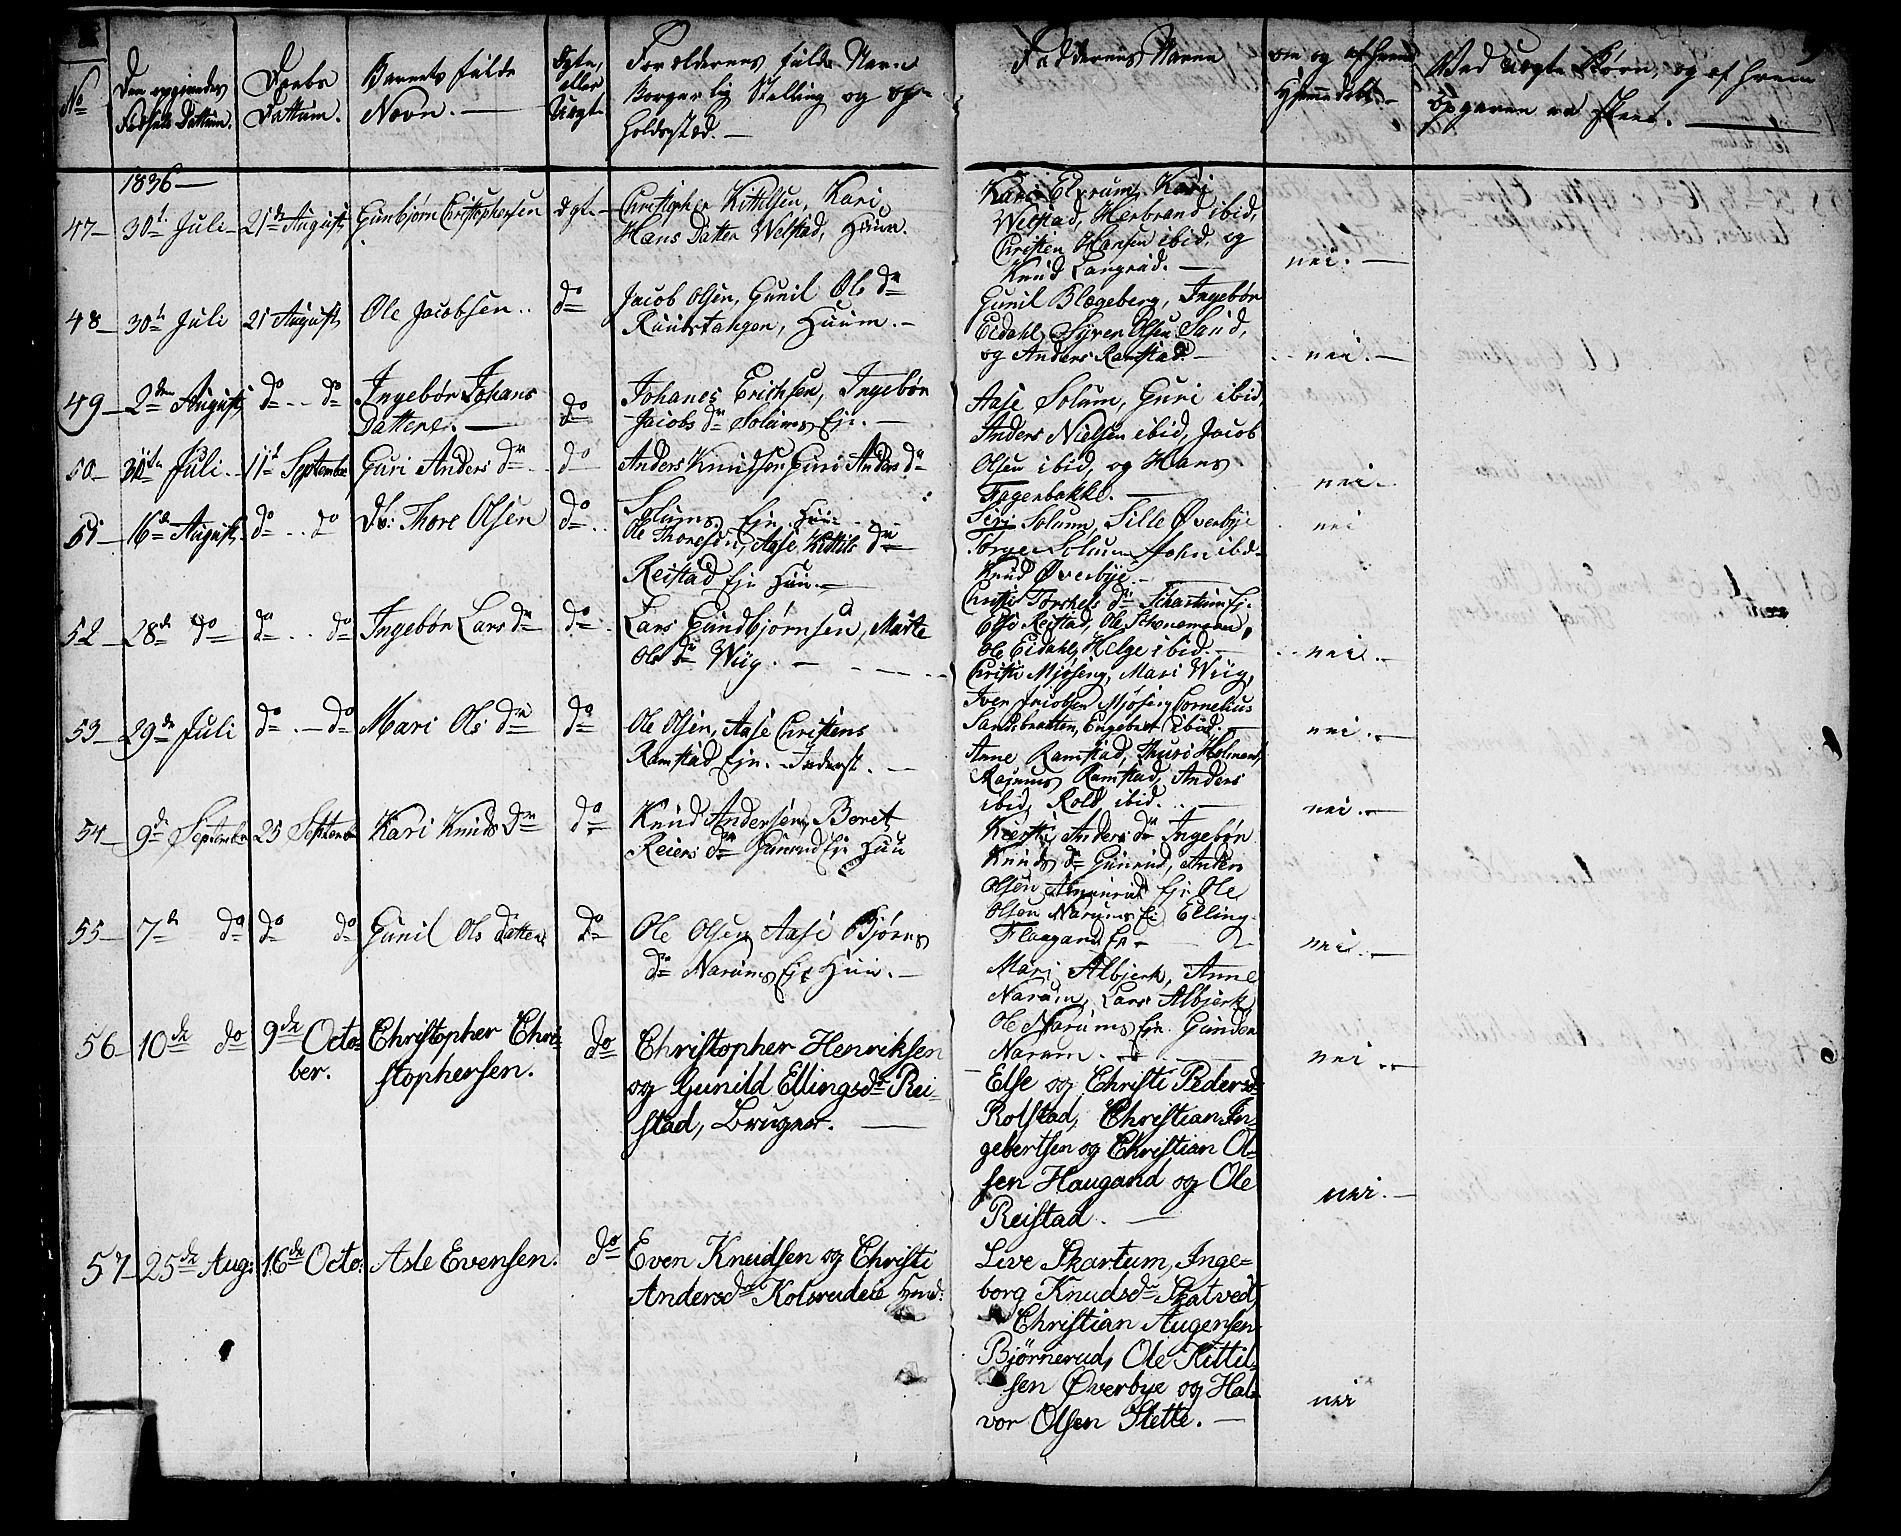 No
Den opgivendes
Fødsels Dattum.
Daabs
Dattum.
Barnets fulde
Navn. —
Ægte,
eller
Uægte
Forældrenes fulde Navn
Borgerlig Stilling og op-
holdssted. —
Faddernes Navne
om og af hvem
Hjemmedøbt. —
Ved uægte Børn, og af hvem
opgaven er skeet. —
1836 —
47 — 30te Juli — 21de August Gunbjørn Christophersen Ægte —
Christopher Kittilsen, Kari
Hans Datter Welstad, Huun.
Kari Elsrum, Kari
Welstad, Herbrand ibid,
Christen Hansen ibid, og
Knud Langrud. —
nei. —
48 — 30te Juli 21 August Ole Jacobsen .. do
Jacob Olsen, Gunil Ols dr
Ruustangen, Huum. —
Gunil Blegeberg, Ingebør
Eidahl, Syver Olsen Sand,
og Anders Ramstad. —
nei. —
49 — 2den August do .. do Ingebør Johans
Datter. —
do
Johanes Erichsen, Ingebør
Jacobs dr Solums Eje. —
Aase Solum, Guri ibid,
Anders Nielsen ibid, Jacob
Olsen ibid, og Hans
Fagerbakke. —
nei.
50 — Juli — 11te September Guri Anders dr do
Anders Knudsen, Guri Anders dr
Solums Eje, Huun
Siri Solum, Sille Øverbye
Torger Solum, John ibd.
Knud Øverbye. —
nei
51 — 16de August do .. do Db: Thore Olsen do ..
Ole Thoresen, Aase Kittils dr
Reistad Eje Huu. —
Christi Torchels dr Eje.
Else Reistad, Ole
Ole Eidahl, Helge ibid. —
nei. —
52 — 28de do do .. do Ingebør Lars dr do
Lars Gundbjørnsen, Marte
Ols dr Wiig. —
Christi Mjøseng, Mari Wiig,
Iver Jacobsen Mjøseng, Cornelius
Sandsbratten, Engebret ibid. —
nei. —
53 — 29de Juli do. — do Mari Ols dr do
Ole Olsen, Aase Christens
Ramstad Eje. Inderst. —
Anne Ramstad, Thuri
Rasmus Ramstad, Anders
ibid, Rold ibid. . —
nei. —
54 — 9de September 25 September Kari Knuds dr do
Knud Andersen, Beret
Reiers dr Gunrud Eje Huu
Kiersti Anders dr Ingebør
Knuds dr Gunrud, Anders
Olsen Eje Ole
Olsen Narums E: Elling
nei. —
55 — 7de do do do Gunil Ols Datter do
Ole Olsen, Aase Bjørns
dr Narums Eje Huu. —
Mari Albjerk, Anne
Narum, Lars Albjerk,
Ole Narums Eje. Gunder
Narum. —
nei. —
56 — 10de do 9de Octo-
ber.
Christopher Chri-
stophersen.
do
Christopher Henriksen
og Gunild Ellingsdr Rei-
stad, Bruger. —
Else og Christi Pedersdr
Rolstad, Christian In-
gebertsen og Christian Ol-
sen Haugand og Ole
Reistad. —
nei. —
57 — 25de Aug: 16de Octo. Asle Evensen. do
Even Knudsen og Christi
Andersdr Kolsrudeie
Live Skartum, Inge-
borg Knudsdr Skatvedt,
Christian Augensen
Bjørnerud, Ole Kittil-
sen Øverbye og Hal-
vor Olsen Slette. —
nei